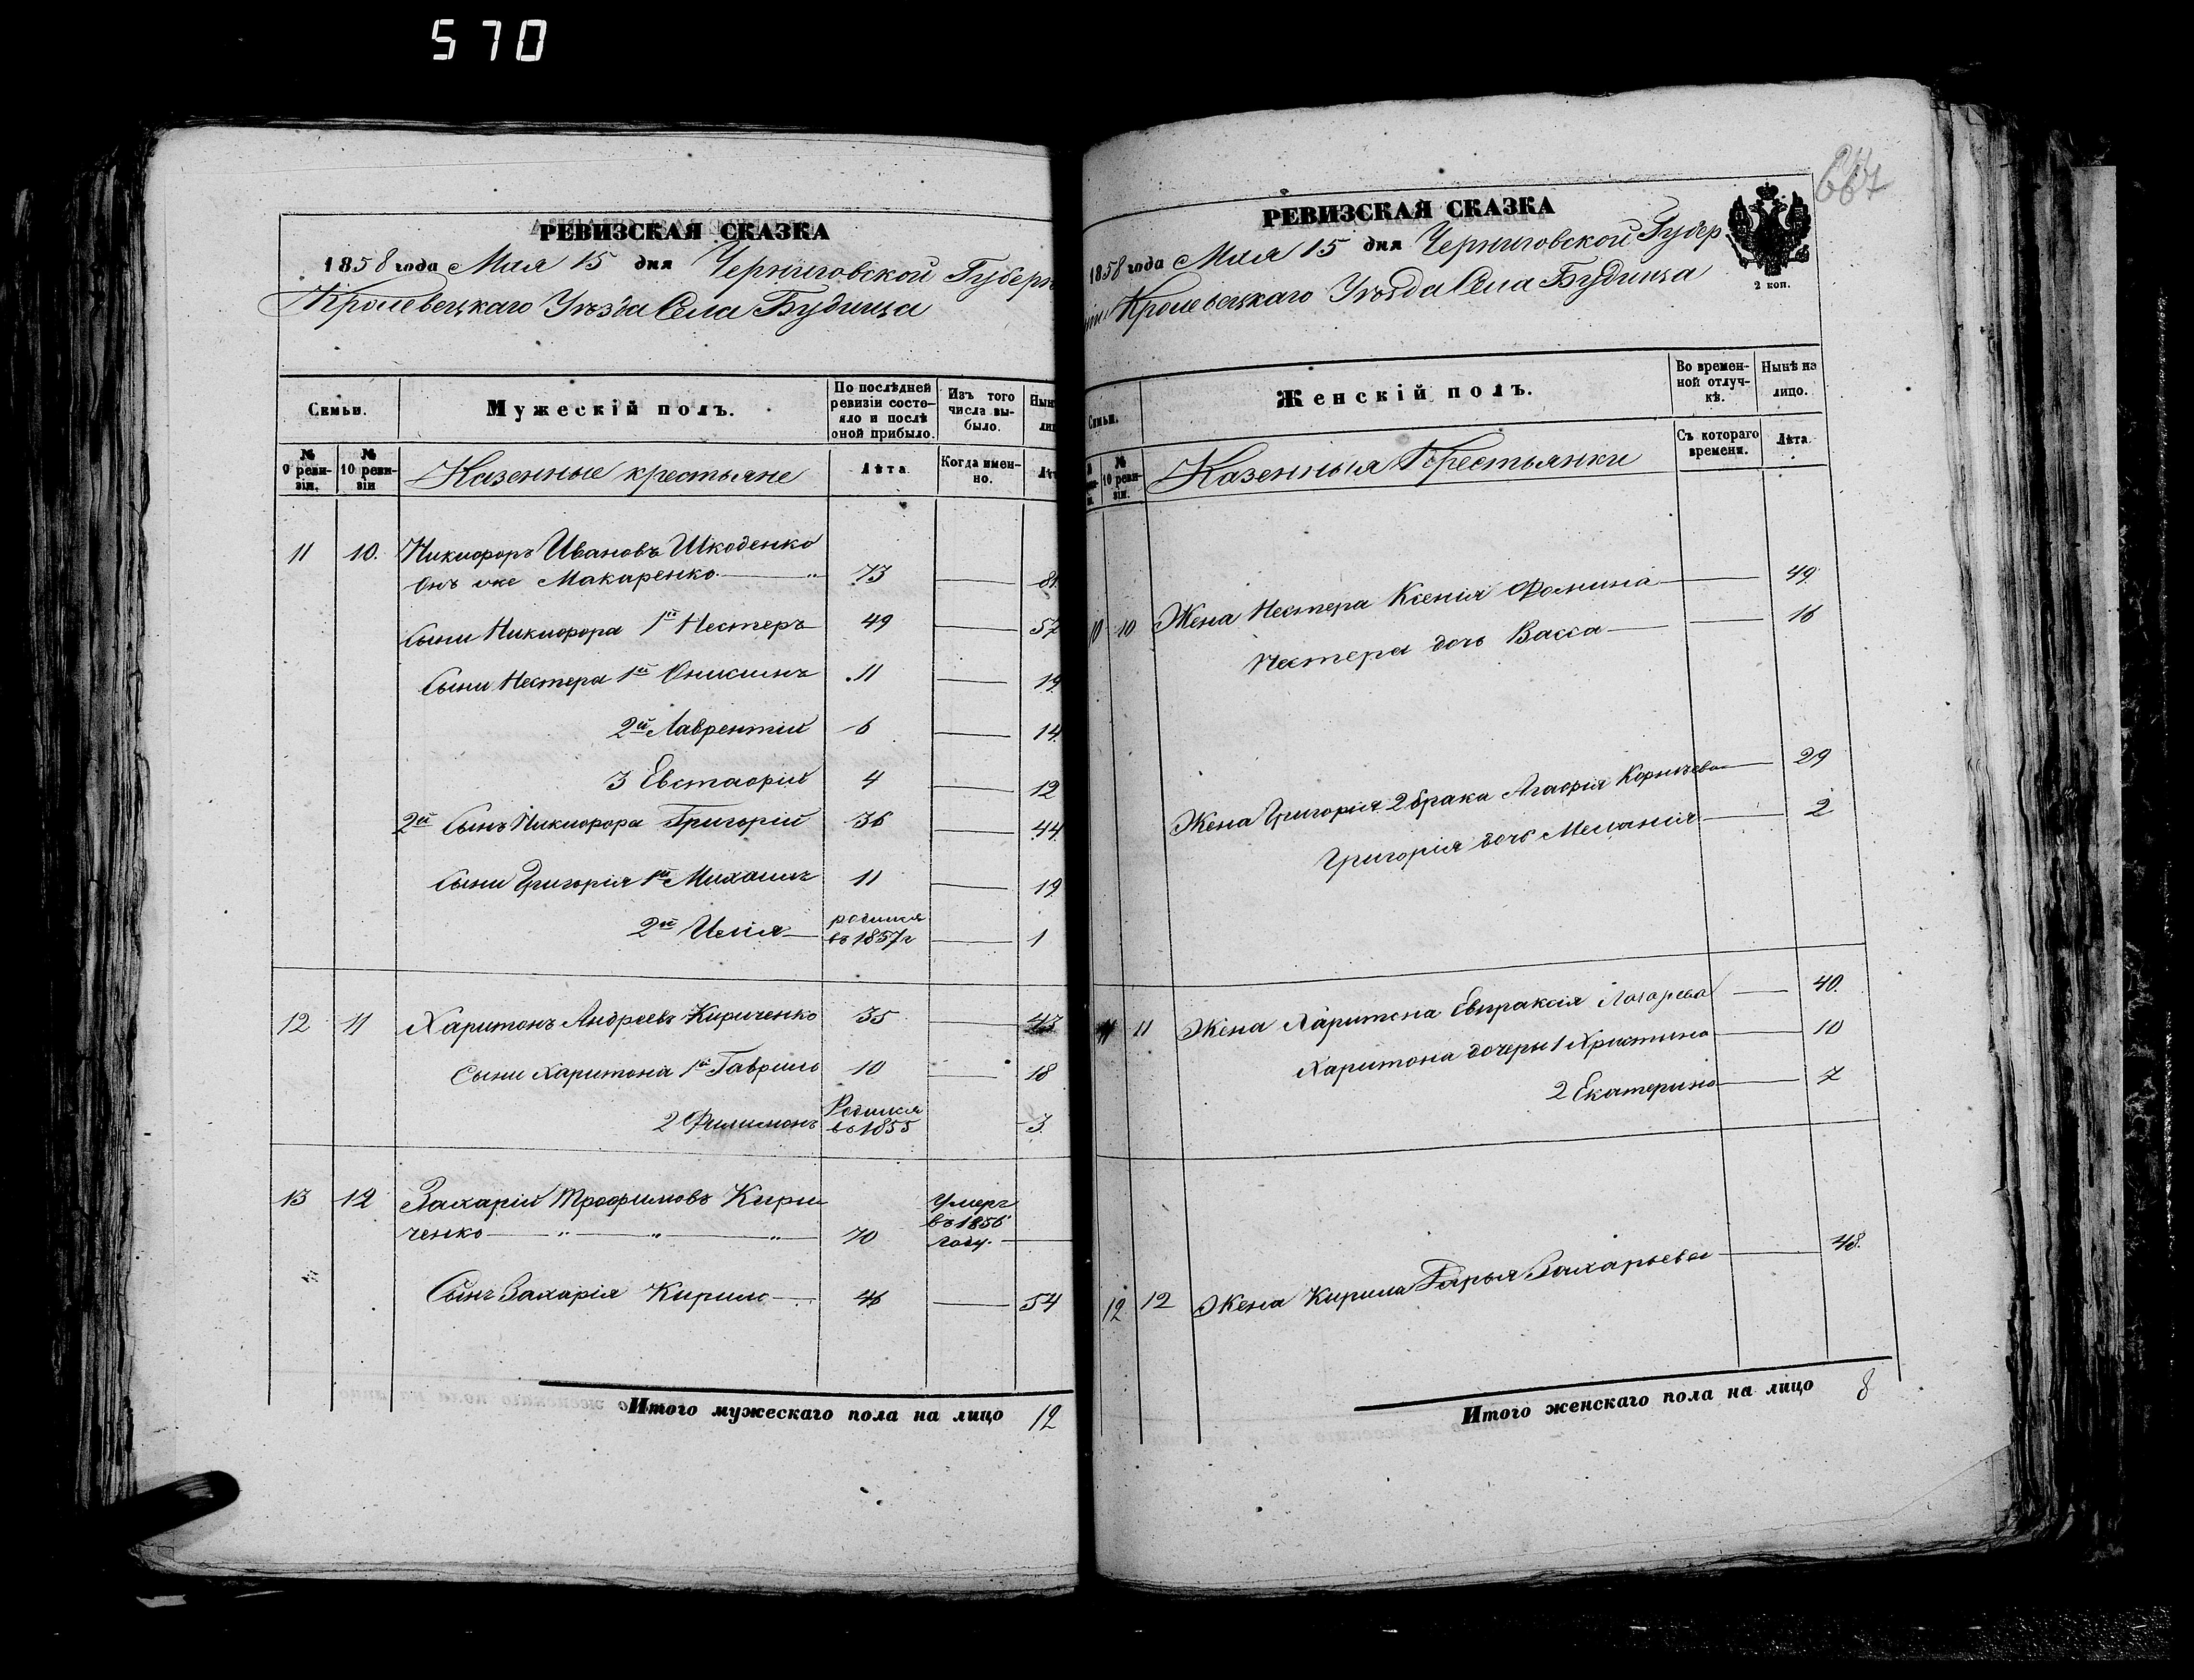 570
РЕВИЗСКАЯ СКАЗКА
1858 года Мая 15 дня Черниговской Губерн
Кролевецкаго Уѣзда Села Будища
Семьи.
Мужескій полъ.
По послѣдней ревизіи состояло и послѣ оной прибыло.
Изъ того числа выбыло.
№ 9 ревизіи.
№ 10 ревизіи
Казенные крестьяне
Лѣта
Когда именно.
11 10. Никифоръ Ивановъ Шкоденко
Онъ же Макаренко 73 81
Сыни Никифора 1й Нестеръ 49 57
Сыни Нестера 1й Онисимъ 11 19
2й Лаврентій 6 14
3 Евстафій 4 12
2й Сынъ Никифора Григорій 36 44
Сыни Григорія 1й Михаилъ 11 19
2й Илія родился въ 1857 г 1
12 11 Харитонъ Андреевъ Кириченко 35 43
Сыни Харитона 1й Гаврило 10 18
2 Филимонъ Родился въ 1855 3
13 12 Захарій Трофимовъ Кири
ченко 70 Умеръ въ 1856 году.
Сынъ Захарія Кирило 46 54
Итого мужескаго пола на лицо 12
667
РЕВИЗСКАЯ СКАЗКА
1858 года Мая 15 дня Черниговской Губер
Кролевецкаго Уѣзда Села Будища
2 коп.
Семьи.
Женскій полъ.
Во временной отлучкѣ.
Нынѣ на лицо.
№ 10 ревизіи.
Казенныя Крестьянки
Съ котораго времени.
Лѣта.
10 10 Жена Нестера Ксенія Фомина 49
Нестера дочь Васса 16
Жена Григорія 2 брака Агафія Корнѣева 29
Григорія дочь Меланія 2
11 11 Жена Харитона Евпраксія Лазарева 40.
Харитона дочеры 1 Христина 10
2 Екатерина 7
12 12 Жена Кирила Дарья Захарьева 48.
Итого женскаго пола на лицо 8